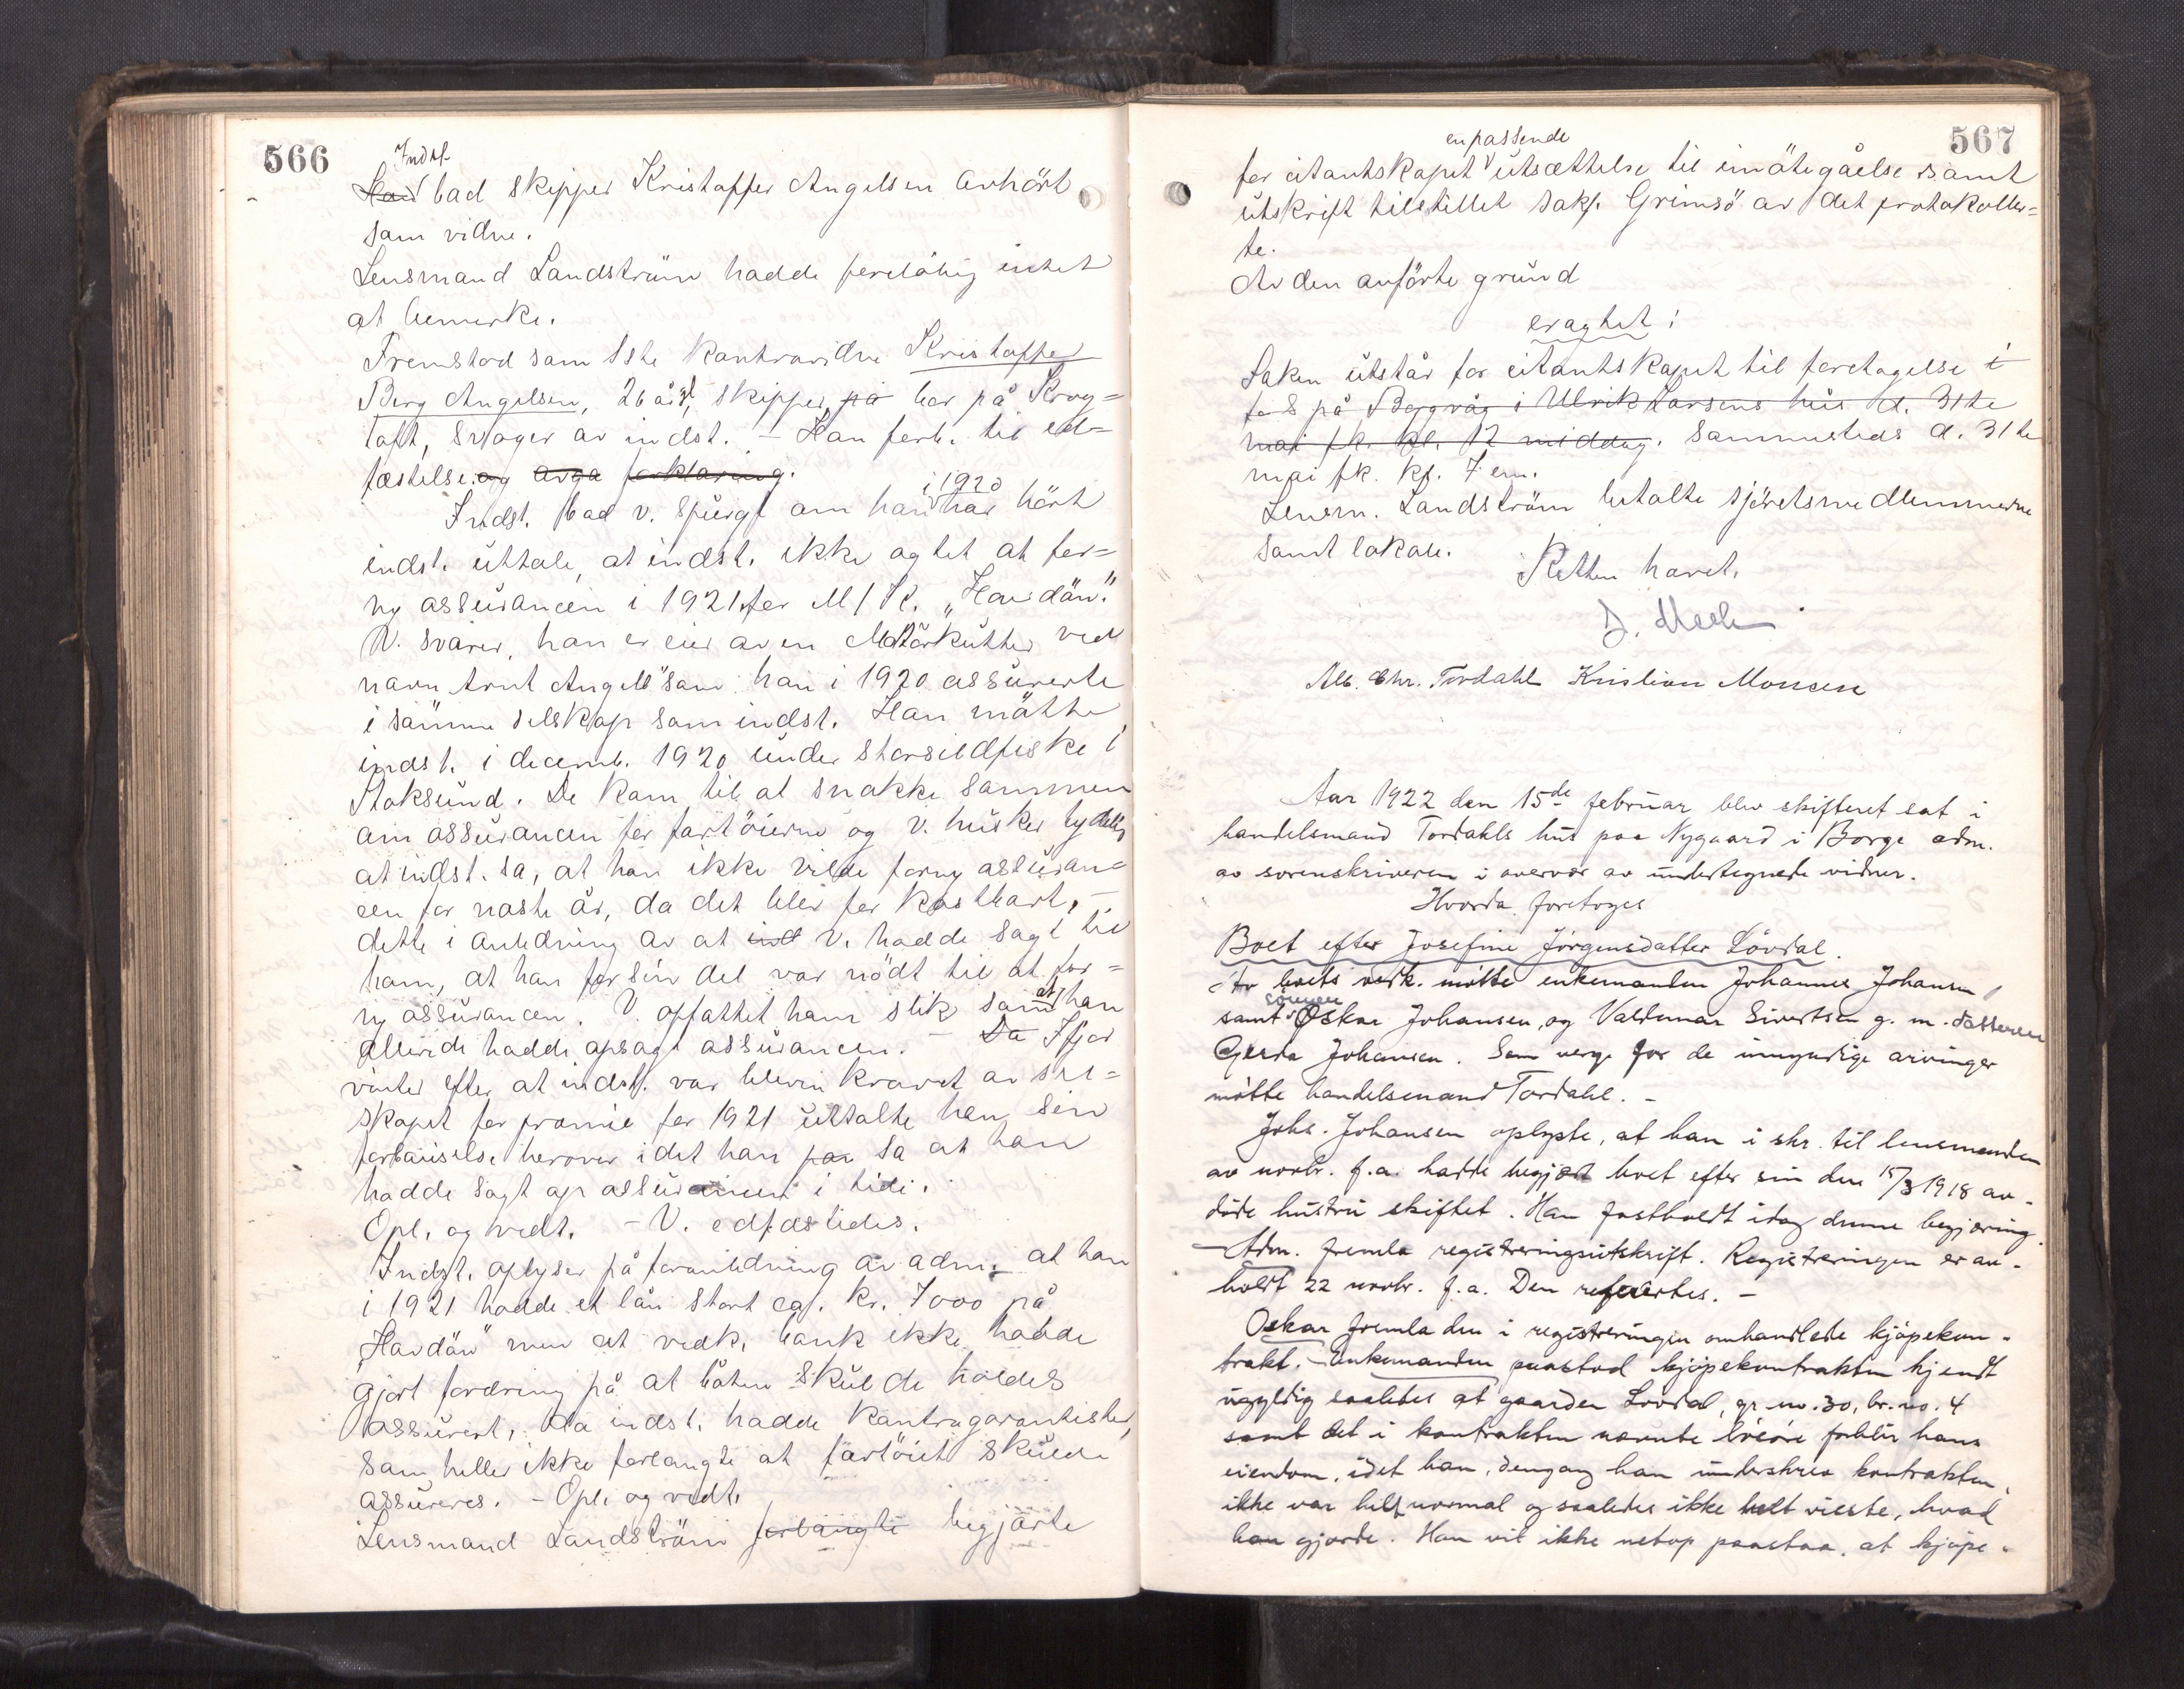 566
Indst.
Han bad skipper Kristoffer Angelsen avhört
som vidne.
Lensmand Landström hadde forelöbig intet
at bemerke.
Fremstod som 1ste kontravidne Kristoffer
Berg Angelsen, 26 år, skipper, på bor på Krog=
toft, svoger av indst. – Han forb. til ed=
fæstelse. og avga forklaring.
i 1920
Indst. bad v. spurgt om han har hört
indst. uttale, at indst. ikke agtet at for=
ny assurancen i 1921 for M/K. „Havdön“.
V. svarer, han er eier av en Motorkutter ved
navn Arnt Angell" som han i 1920 assurerte
i samme selskap som indst. Han mötte
indst. i decemb. 1920 under storsildfiske i
Stoksund. De kom til at snakke sammen
om assurancen for fartöierne og v. husker tydelig
at indst. sa, at han ikke vilde forny assuran=
cen for næste år, da det blev for kostbart, –
dette i anledning av at indst v. hadde sagt til
ham, at han for sin del var nödt til at for=
ny assurancen. V. opfattet ham slik som at han
allerede hadde opsagt assurancen. – Da Ifjor
vinter efter at indst. var bleven krævet av sel=
skapet for præmie for 1921 uttalte han sin
forbauselse herover idet han paa sa at han
hadde sagt op assurancen i tide.
Opl. og vedt. – V. edfæstedes.
Indst. oplyser på foranledning av adm. at han
i 1921 hadde et lån stort ca. kr. 7000 på
„Havdön" men at vedk. bank ikke hadde
gjort fordring på at båten skulde holdes
assurert, da indst. hadde kontragarantister,
som heller ikke forlangte at fartöiet skulde
assureres. – Opl. og vedt.
Lensmand Landström forlangte begjärte
567
en passende
for citantskapet utsættelse til imötegåelse samt
utskrift tilstillet sakf. Grimsö av det protokoller=
te.
Av den anförte grund
eragtet:
Saken utstår for citantskapet til foretagelse i
på Borgvåg i Ulrik Larsens hus d. 31te
mai fk. kl. 12 middag. sammesteds d. 31te
mai fk. kl. 7 em.
Lensm. Landström betalte sjöretsmedlemmerne
samt lokale.
Retten hævet.
Alb. Chr. Tordahl Kristian Monsen
Aar 1922 den 15de februar blev skifteret sat i
handelsmand Tordahls hus paa Nygaard i Borge adm.
av sorenskriveren i overvær av undertegnede vidner.
Hvorda foretoges
Boet efter Josefine Jörgensdatter Lövdal.
Av boets vedk. mötte enkemanden Johannes Johansen
sönnen
samt Oskar Johansen, og Valdemar Sivertsen g. m. datteren
Gjerda Johansen. Som verge for de umyndige arvinger
mötte handelsmand Tordahl. –
Johs. Johansen oplyste, at han i skr. til lensmanden
av novbr. f.a. hadde begjært boet efter sin den 15/3 1918 av-
döde hustru skiftet. Han fastholdt idag denne begjæring.
– Adm. fremla registreringsutskrift. Registreringen er av-
holdt 22 novbr. f.a. Den refertes. –
Oskar fremla den i registreringen omhandlede kjöpekon-
trakt. – Enkemanden paastod kjöpekontrakten kjendt
ugyldig saaledes at gaarden Lövdal, gr. no. 30, br. no. 4
samt det i kontrakten nævnte lösöre forblir hans
eiendom, idet han, dengang han underskrev kontrakten,
ikke var helt normal og saaledes ikke helt visste, hvad
han gjorde. Han vil ikke netop paastaa, at kjöpe-